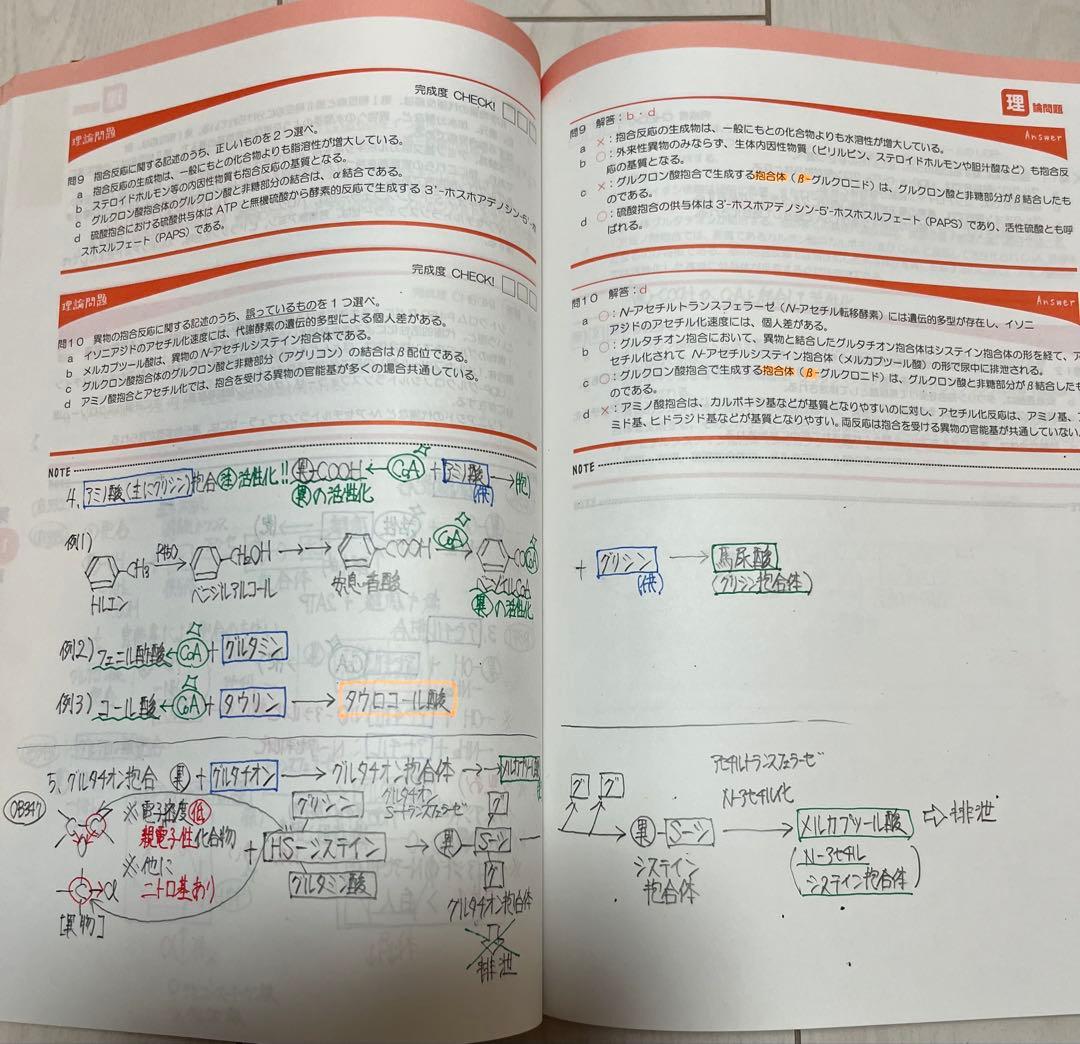 理論問題
完成度 CHECK!
問9 抱合反応に関する記述のうち、正しいものを2つ選べ。
a 抱合反応の生成物は、一般にもとの化合物よりも脂溶性が増大している。
b ステロイドホルモン等の内因性物質も抱合反応の基質となる。
c グルクロン酸抱合体のグルクロン酸と非糖部分の結合は、α結合である。
d 硫酸抱合における硫酸供与体はATPと無機硫酸から酵素的反応で生成する 3'-ホスホアデノシン-5'-ホ
スホスルフェート(PAPS)である。
理論問題
完成度 CHECK!
問10 異物の抱合反応に関する記述のうち、誤っているものを1つ選べ。
a イソニアジドのアセチル化速度には、代謝酵素の遺伝的多型による個人差がある。
b メルカプツール酸は、異物のN-アセチルシステイン抱合体である。
c グルクロン酸抱合体のグルクロン酸と非糖部分(アグリコン)の結合はβ配位である。
d アミノ酸抱合とアセチル化では、抱合を受ける異物の官能基が多くの場合共通している。
NOTE
4、アミノ酸(主にグリシン)抱合 注 活性化!! 異-COOH ← CoA + アミノ酸 → 抱
異の活性化 (供)
例1)
CH3 P450 CH2OH COOH CoA COCoA
トルエン ベンジルアルコール 安息香酸 ベンゾイルCoA
異の活性化
例2) フェニル酢酸 ← CoA + グルタミン
例3) コール酸 ← CoA + タウリン → タウロコール酸
5、グルタチオン抱合 異 + グルタチオン → グルタチオン抱合体 → → メルカプツール酸
グルタチオン
S-トランスフェラーゼ
OBS47
※電子密度低
親電子性化合物
※他に
ニトロ基あり
C α
[異物]
+
グリシン
HS-システイン
グルタミン酸
→ 異-S-シ
グ
グ
グルタチオン抱合体
排泄
理論問題
Answer
問9 解答:b・d
a ×:抱合反応の生成物は、一般にもとの化合物よりも水溶性が増大している。
b ○:外来性異物のみならず、生体内因性物質(ビリルビン、ステロイドホルモンや胆汁酸など)も抱合反
応の基質となる。
c ×:グルクロン酸抱合で生成する抱合体(β-グルクロニド)は、グルクロン酸と非糖部分がβ結合したも
のである。
d ○:硫酸抱合の供与体は3'-ホスホアデノシン-5'-ホスホスルフェート(PAPS)であり、活性硫酸とも呼
ばれる。
Answer
問10 解答:d
a ○:N-アセチルトランスフェラーゼ(N-アセチル転移酵素)には遺伝的多型が存在し、イソニ
アジドのアセチル化速度には、個人差がある。
b ○:グルタチオン抱合において、異物と結合したグルタチオン抱合体はシステイン抱合体の形を経て、ア
セチル化されて N-アセチルシステイン抱合体(メルカプツール酸)の形で尿中に排泄される。
c ○:グルクロン酸抱合で生成する抱合体(β-グルクロニド)は、グルクロン酸と非糖部分がβ結合したも
のである。
d ×:アミノ酸抱合は、カルボキシ基などが基質となりやすいのに対し、アセチル化反応は、アミノ基、ア
ミド基、ヒドラジド基などが基質となりやすい。両反応は抱合を受ける異物の官能基が共通していない。
NOTE
+ グリシン → 馬尿酸
(供) (グリシン抱合体)
アセチルトランスフェラーゼ
N-アセチル化
グ グ
異-S-シ → メルカプツール酸 ⇨ 排泄
システイン
抱合体
(N-アセチル
システイン抱合体)